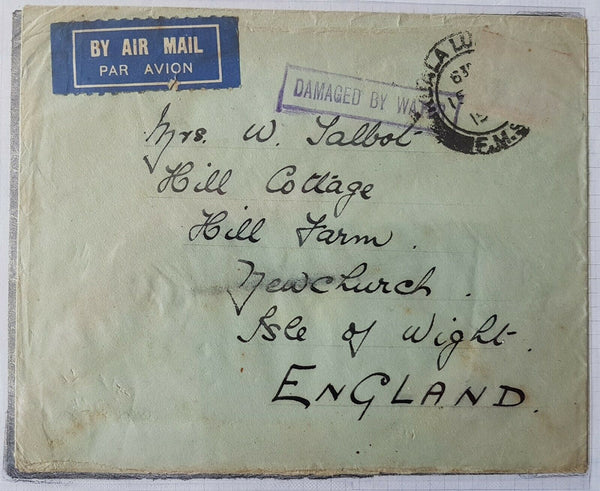 BY AIR MAIL
PAR AVION
DAMAGED BY
Mrs. W. Talbot
Hill Cottage
Hill Farm.
Newchurch.
Isle of Wight.
ENGLAND.
F.M.S